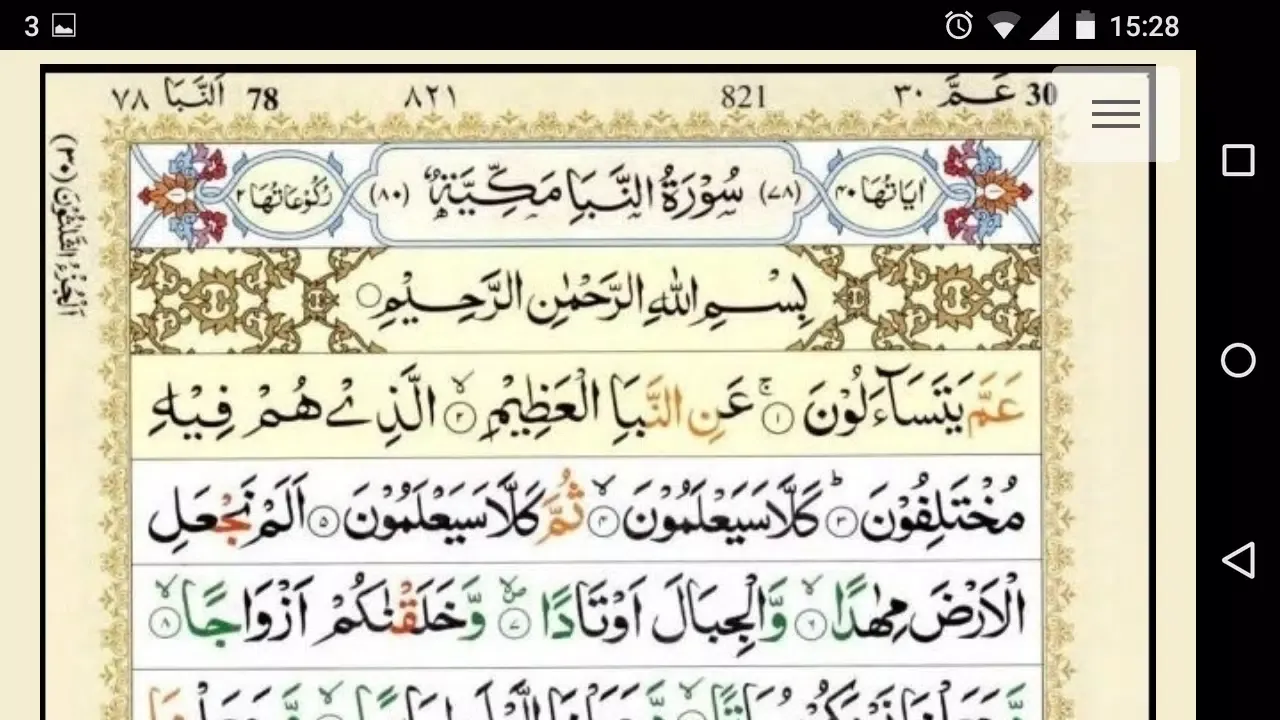 3 15:28
30 عَمَّ ٣٠ 821 ٨٢١ 78 اَلنَّبَا ٧٨
اٰیَاتُهَا ٤٠ (٧٨) سُوْرَةُ النَّبَاِ مَكِّیَّةٌ (٨٠) رُكُوْعَاتُهَا ٢
اَلْجُزْءُ الثَّلٰثُوْنَ (٣٠)
بِسْمِ اللّٰهِ الرَّحْمٰنِ الرَّحِیْمِ
عَمَّ یَتَسَآءَلُوْنَ ۚ ۝١ عَنِ النَّبَاِ الْعَظِیْمِ ۙ ۝٢ الَّذِیْ هُمْ فِیْهِ
مُخْتَلِفُوْنَ ؕ ۝٣ كَلَّا سَیَعْلَمُوْنَ ۙ ۝٤ ثُمَّ كَلَّا سَیَعْلَمُوْنَ ۝٥ اَلَمْ نَجْعَلِ
الْاَرْضَ مِهٰدًا ۙ ۝٦ وَّالْجِبَالَ اَوْتَادًا ۪ۙ ۝٧ وَّخَلَقْنٰكُمْ اَزْوَاجًا ۙ ۝٨